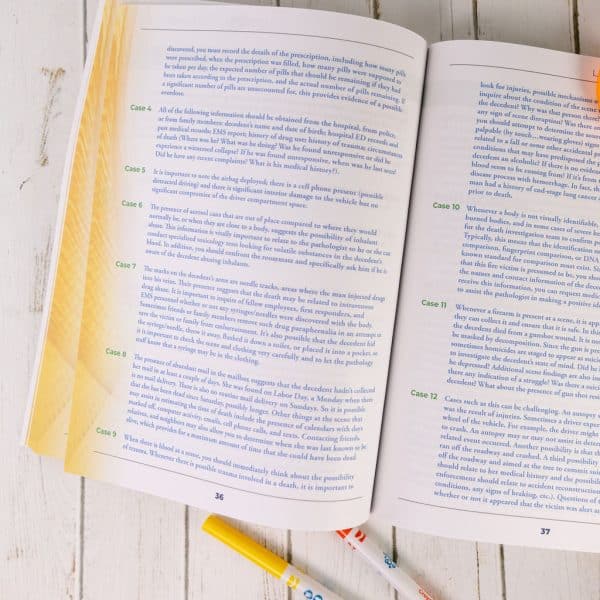 discovered, you must record the details of the prescription, including how many pills
were prescribed, when the prescription was filled, how many pills were supposed to
be taken per day, the expected number of pills that should be remaining if they had
been taken according to the prescription, and the actual number of pills remaining. If
a significant number of pills are unaccounted for, this provides evidence of a possible
overdose.
Case 4 All of the following information should be obtained from the hospital, from police,
or from family members: decedent's name and date of birth; hospital ED records and
past medical records; EMS report; history of drug use; history of trauma; circumstances
of death (Where was he? What was he doing? Was he found unresponsive or did he
experience a witnessed collapse? If he was found unresponsive, when was he last seen?
Did he have any recent complaints? What is his medical history?).
Case 5 It is important to note the airbag deployed; there is a cell phone present (possible
distracted driving) and there is significant interior damage to the vehicle but no
significant compromise of the driver compartment space.
Case 6 The presence of aerosol cans that are out of place compared to where they would
normally be, or when they are close to a body, suggests the possibility of inhalant
abuse. This information is vitally important to relate to the pathologist so he or she can
conduct specialized toxicology tests looking for volatile substances in the decedent's
blood. In addition, you should confront the roommate and specifically ask him if he is
aware of the decedent abusing inhalants.
Case 7 The marks on the decedent's arms are needle tracks, areas where the man injected drugs
into his veins. Their presence suggests that the death may be related to intravenous
drug abuse. It is important to inquire of fellow employees, first responders, and
EMS personnel whether or not any syringes/needles were discovered with the body.
Sometimes friends or family members remove such drug paraphernalia in an attempt to
save the victim or family from embarrassment. It's also possible that the decedent hid
the syringe/needle, threw it away, flushed it down a toilet, or placed it into a pocket, so
it is important to check the scene and clothing very carefully and to let the pathology
staff know that a syringe may be in the clothing.
Case 8 The presence of abundant mail in the mailbox suggests that the decedent hadn't collected
her mail in at least a couple of days. She was found on Labor Day, a Monday when there
is no mail delivery. There is also no routine mail delivery on Sundays. So it is possible
that she has been dead since Saturday, possibly longer. Other things at the scene that
may assist in estimating the time of death include the presence of calendars with days
marked off, computer activity, emails, cell phone calls, and texts. Contacting friends,
relatives, and neighbors may also allow you to determine when she was last known to be
alive, which provides for a maximum amount of time that she could have been dead
Case 9 When there is blood at a scene, you should immediately think about the possibility
of trauma. Whenever there is possible trauma involved in a death, it is important to
36
look for injuries, possible mechanisms
inquire about the condition of the scene
the decedent? Why was that person there?
any sign of scene disruption? Was there
you should attempt to determine the source
palpable (by touch...wearing gloves) signs
related to a fall or some other accidental
conditions that may have predisposed the
decedent an alcoholic? If there is no evidence
blood seem to be coming from? If it's from
disease process with hemorrhage. In fact, the
man had a history of end-stage lung cancer
prior to death.
Case 10 Whenever a body is not visually identifiable,
burned bodies, and in some cases of severe
for the death investigation team to confirm
Typically, this means that the identification
comparison, fingerprint comparison, or DNA
known standard for comparison must exist.
that this fire victim is presumed to be, you should
the names and contact information of the decedent's
receive this information, you can request medical
to assist the pathologist in making a positive
Case 11 Whenever a firearm is present at a scene, it is
they can collect it and ensure that it is safe. In this
the decedent died from a gunshot wound. It is not
be masked by decomposition. Since the gun is
sometimes homicides are staged to appear as
to investigate the decedent's state of mind. Did he
be depressed? Additional scene findings are also
there any indication of a struggle? Was there a suicide
decedent? What about the presence of gun shot
Case 12 Cases such as this can be challenging. An autopsy
was the result of injuries. Sometimes a driver
wheel of the vehicle. For example, the driver might
to crash. An autopsy may or may not assist in
related event occurred. Another possibility is that the
ran off the roadway and crashed. A third possibility
off the roadway and aimed at the tree to commit
should relate to her medical history and the possibility
enforcement should relate to accident reconstruction
conditions, any signs of braking, etc.). Questions of
whether or not it appeared that the victim was alert
37